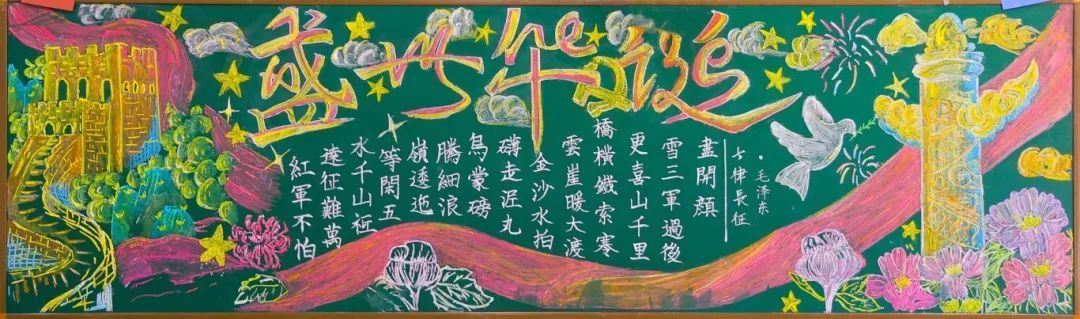 盛世华诞
紅軍不怕
遠征難萬
水千山衹
等閑五
嶺逶迤
騰細浪
烏蒙磅
礴走泥丸
金沙水拍
雲崖暖大渡
橋橫鐵索寒
更喜山千里
雪三軍過後
盡開顏
七律長征
·毛泽东